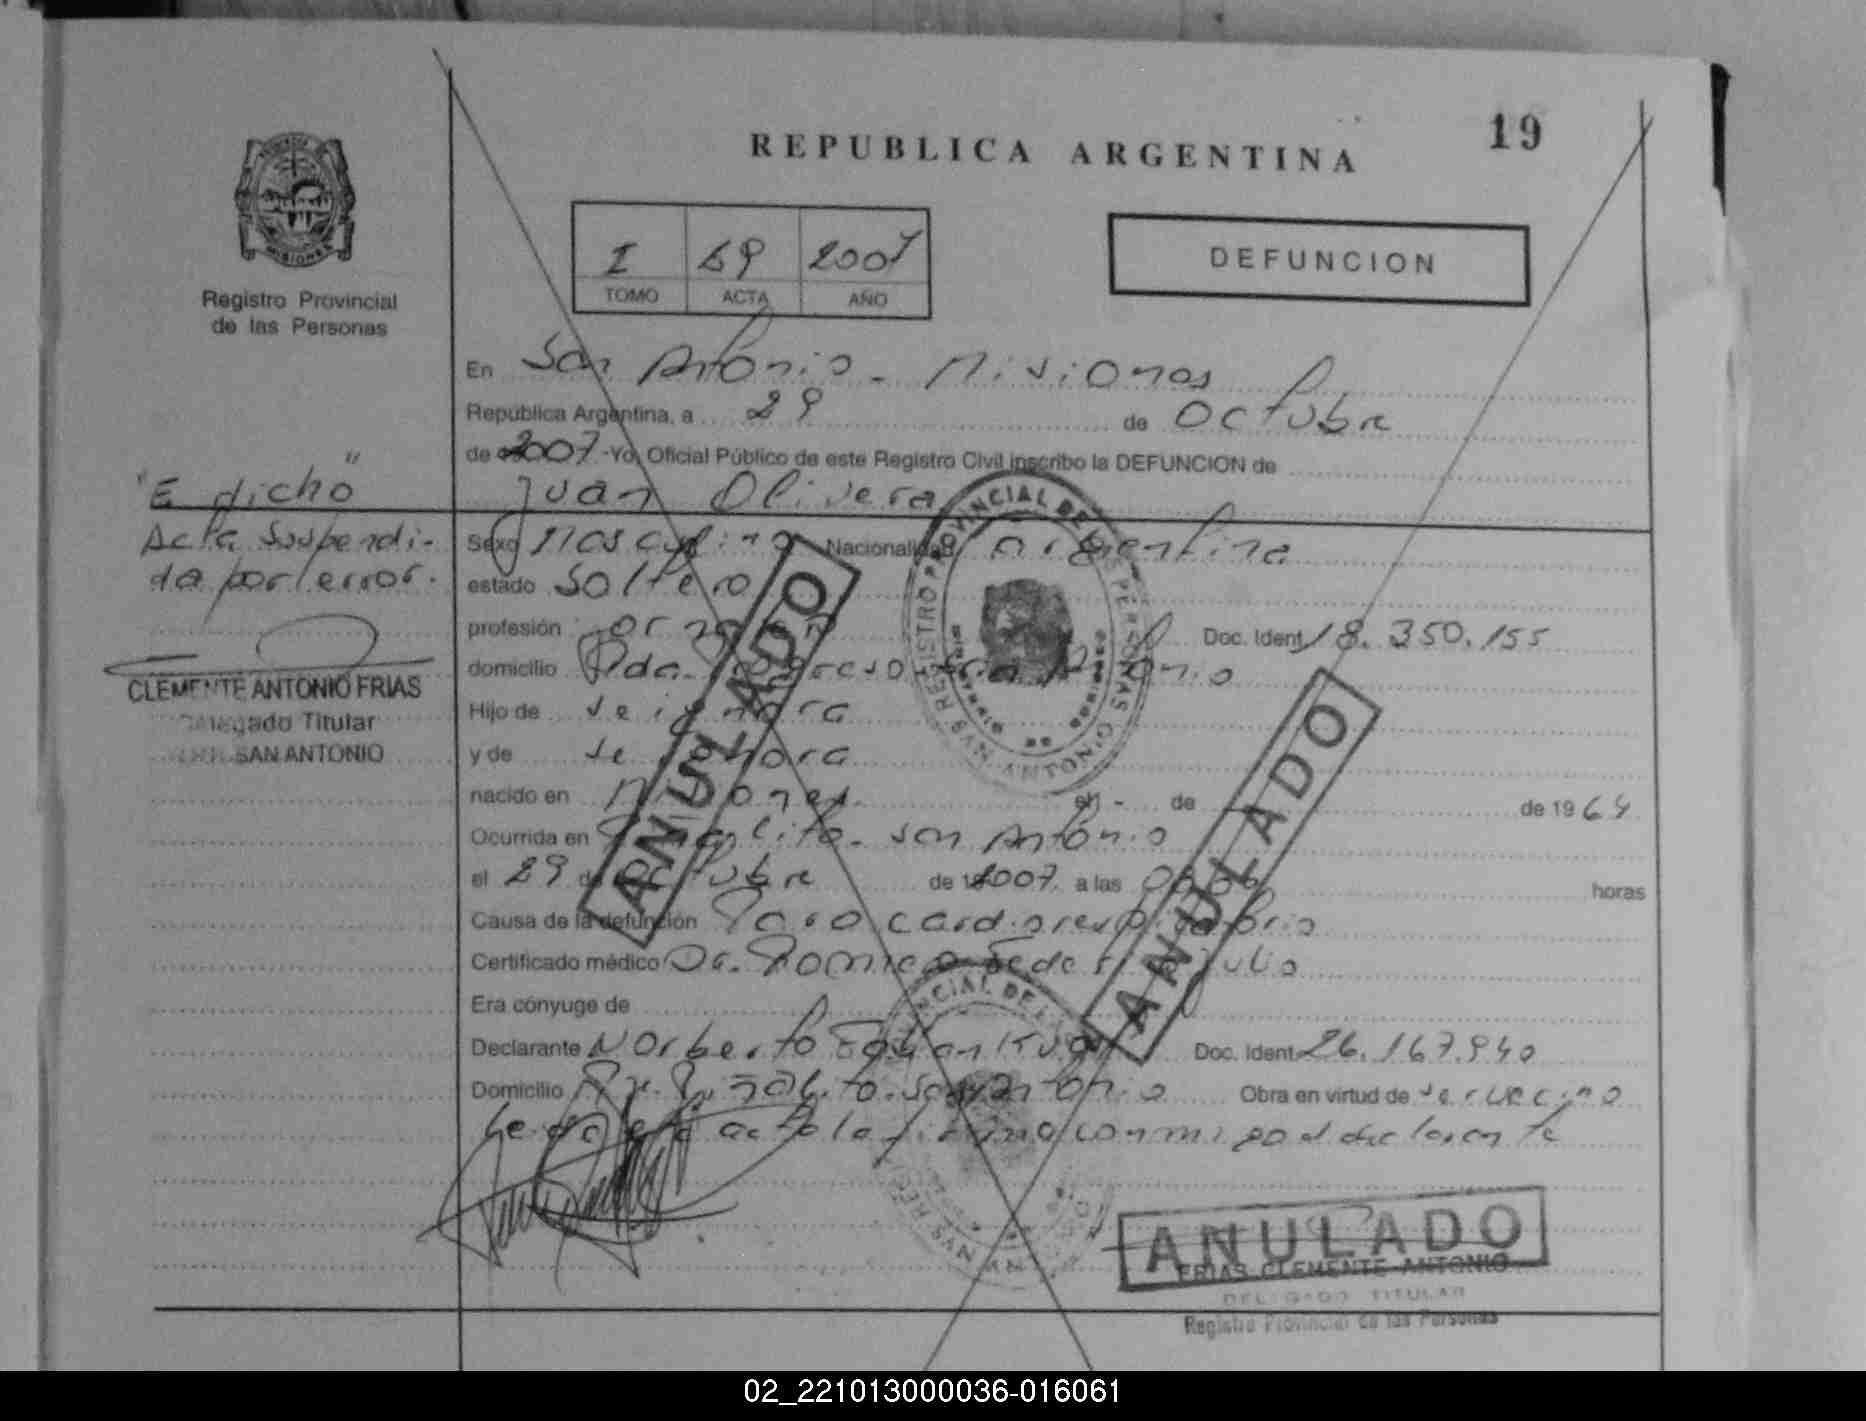 19
REPUBLICA ARGENTINA
MISIONES
Registro Provincial
de las Personas
I 69 2007
TOMO ACTA AÑO
DEFUNCION
En San Antonio - Misiones
República Argentina, a 29 de Octubre
de 2007 -Yo, Oficial Público de este Registro Civil inscribo la DEFUNCION de
Juan Olivera
"E dicho"
Acta suspendi-
da por error.
CLEMENTE ANTONIO FRIAS
Delegado Titular
SAN ANTONIO
Sexo Masculino Nacionalidad argentina
estado Soltero
profesión Doc. Ident. 18.350.155
domicilio San Antonio
Hijo de se ignora
y de se ignora
nacido en Misiones. en - de de 1964
Ocurrida en Piñalito - San Antonio
el 29 de Octubre de 2007. a las horas
Causa de la defunción Paro cardiorespiratorio
Certificado médico Dr. Federico Julio
Era cónyuge de
Declarante Norberto Fabian Doc. Ident. 26.167.940
Domicilio Piñalito. San Antonio Obra en virtud de ser vecino
Leida el acta la firma conmigo el declarante
ANULADO
ANULADO
ANULADO
REGISTRO PROVINCIAL DE LAS PERSONAS
FRIAS CLEMENTE ANTONIO
DELEGADO TITULAR
Registro Provincial de las Personas
02_221013000036-016061